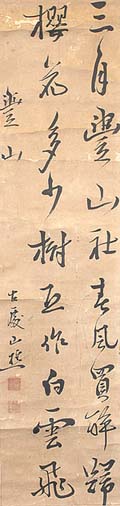 三月豐山社春風買醉歸
櫻花多少樹互作白雲飛
豐山
古處山樵